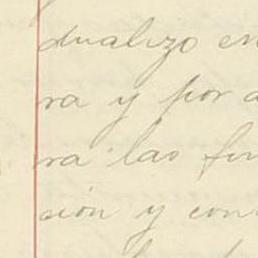 dualizo en
ra y por a
ra las fin
sión y con